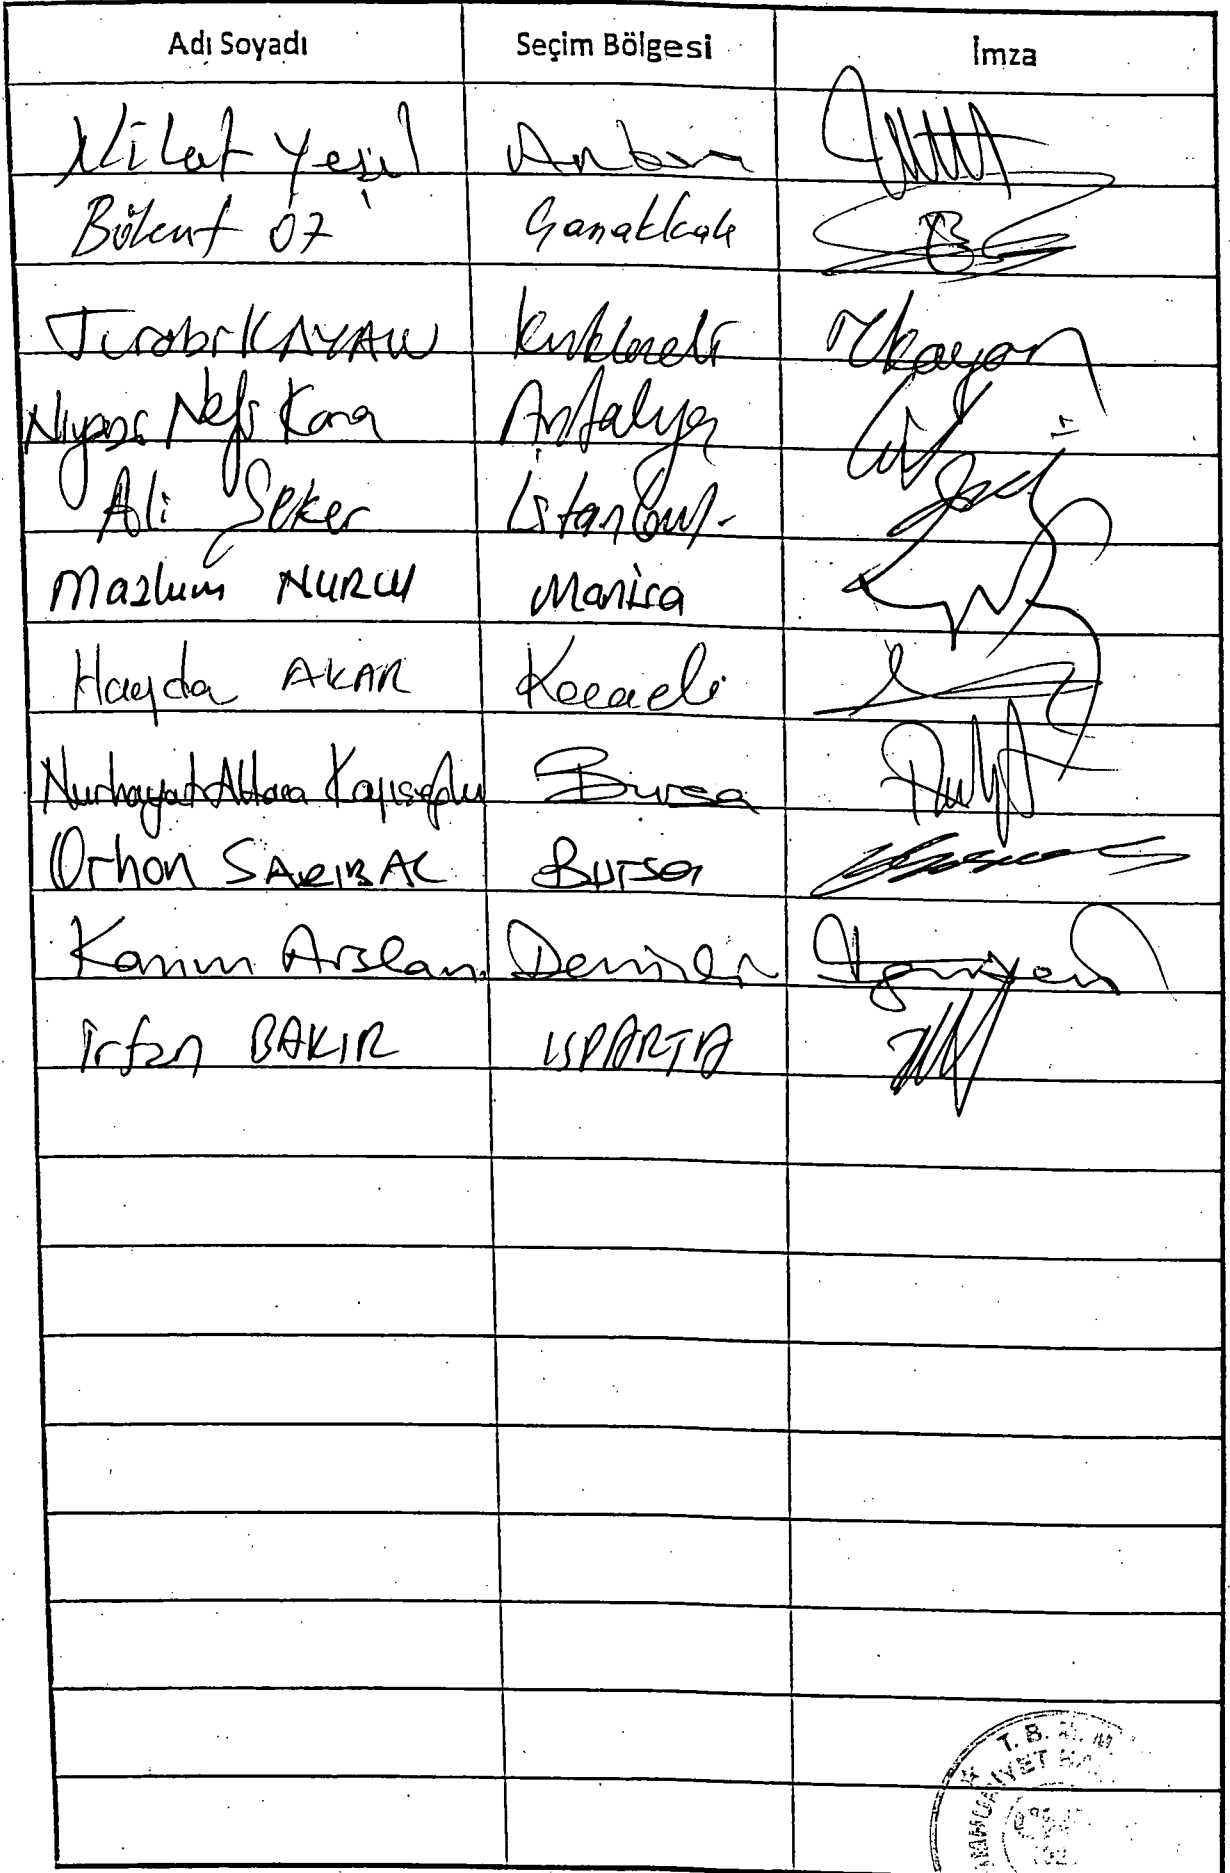 Adı Soyadı Seçim Bölgesi İmza
Nihat Yeşil Ankara
Bülent ÖZ Çanakkale
Turabi KAYAN Kırklareli
Niyazi Nefi Kara Antalya
Ali Şeker İstanbul
Mazlum NURLU Manisa
Haydar AKAR Kocaeli
Nurhayat Altaca Kayışoğlu Bursa
Orhan SARIBAL Bursa
Kazım Arslan Denizli
İrfan BAKIR ISPARTA
T. B. M. M